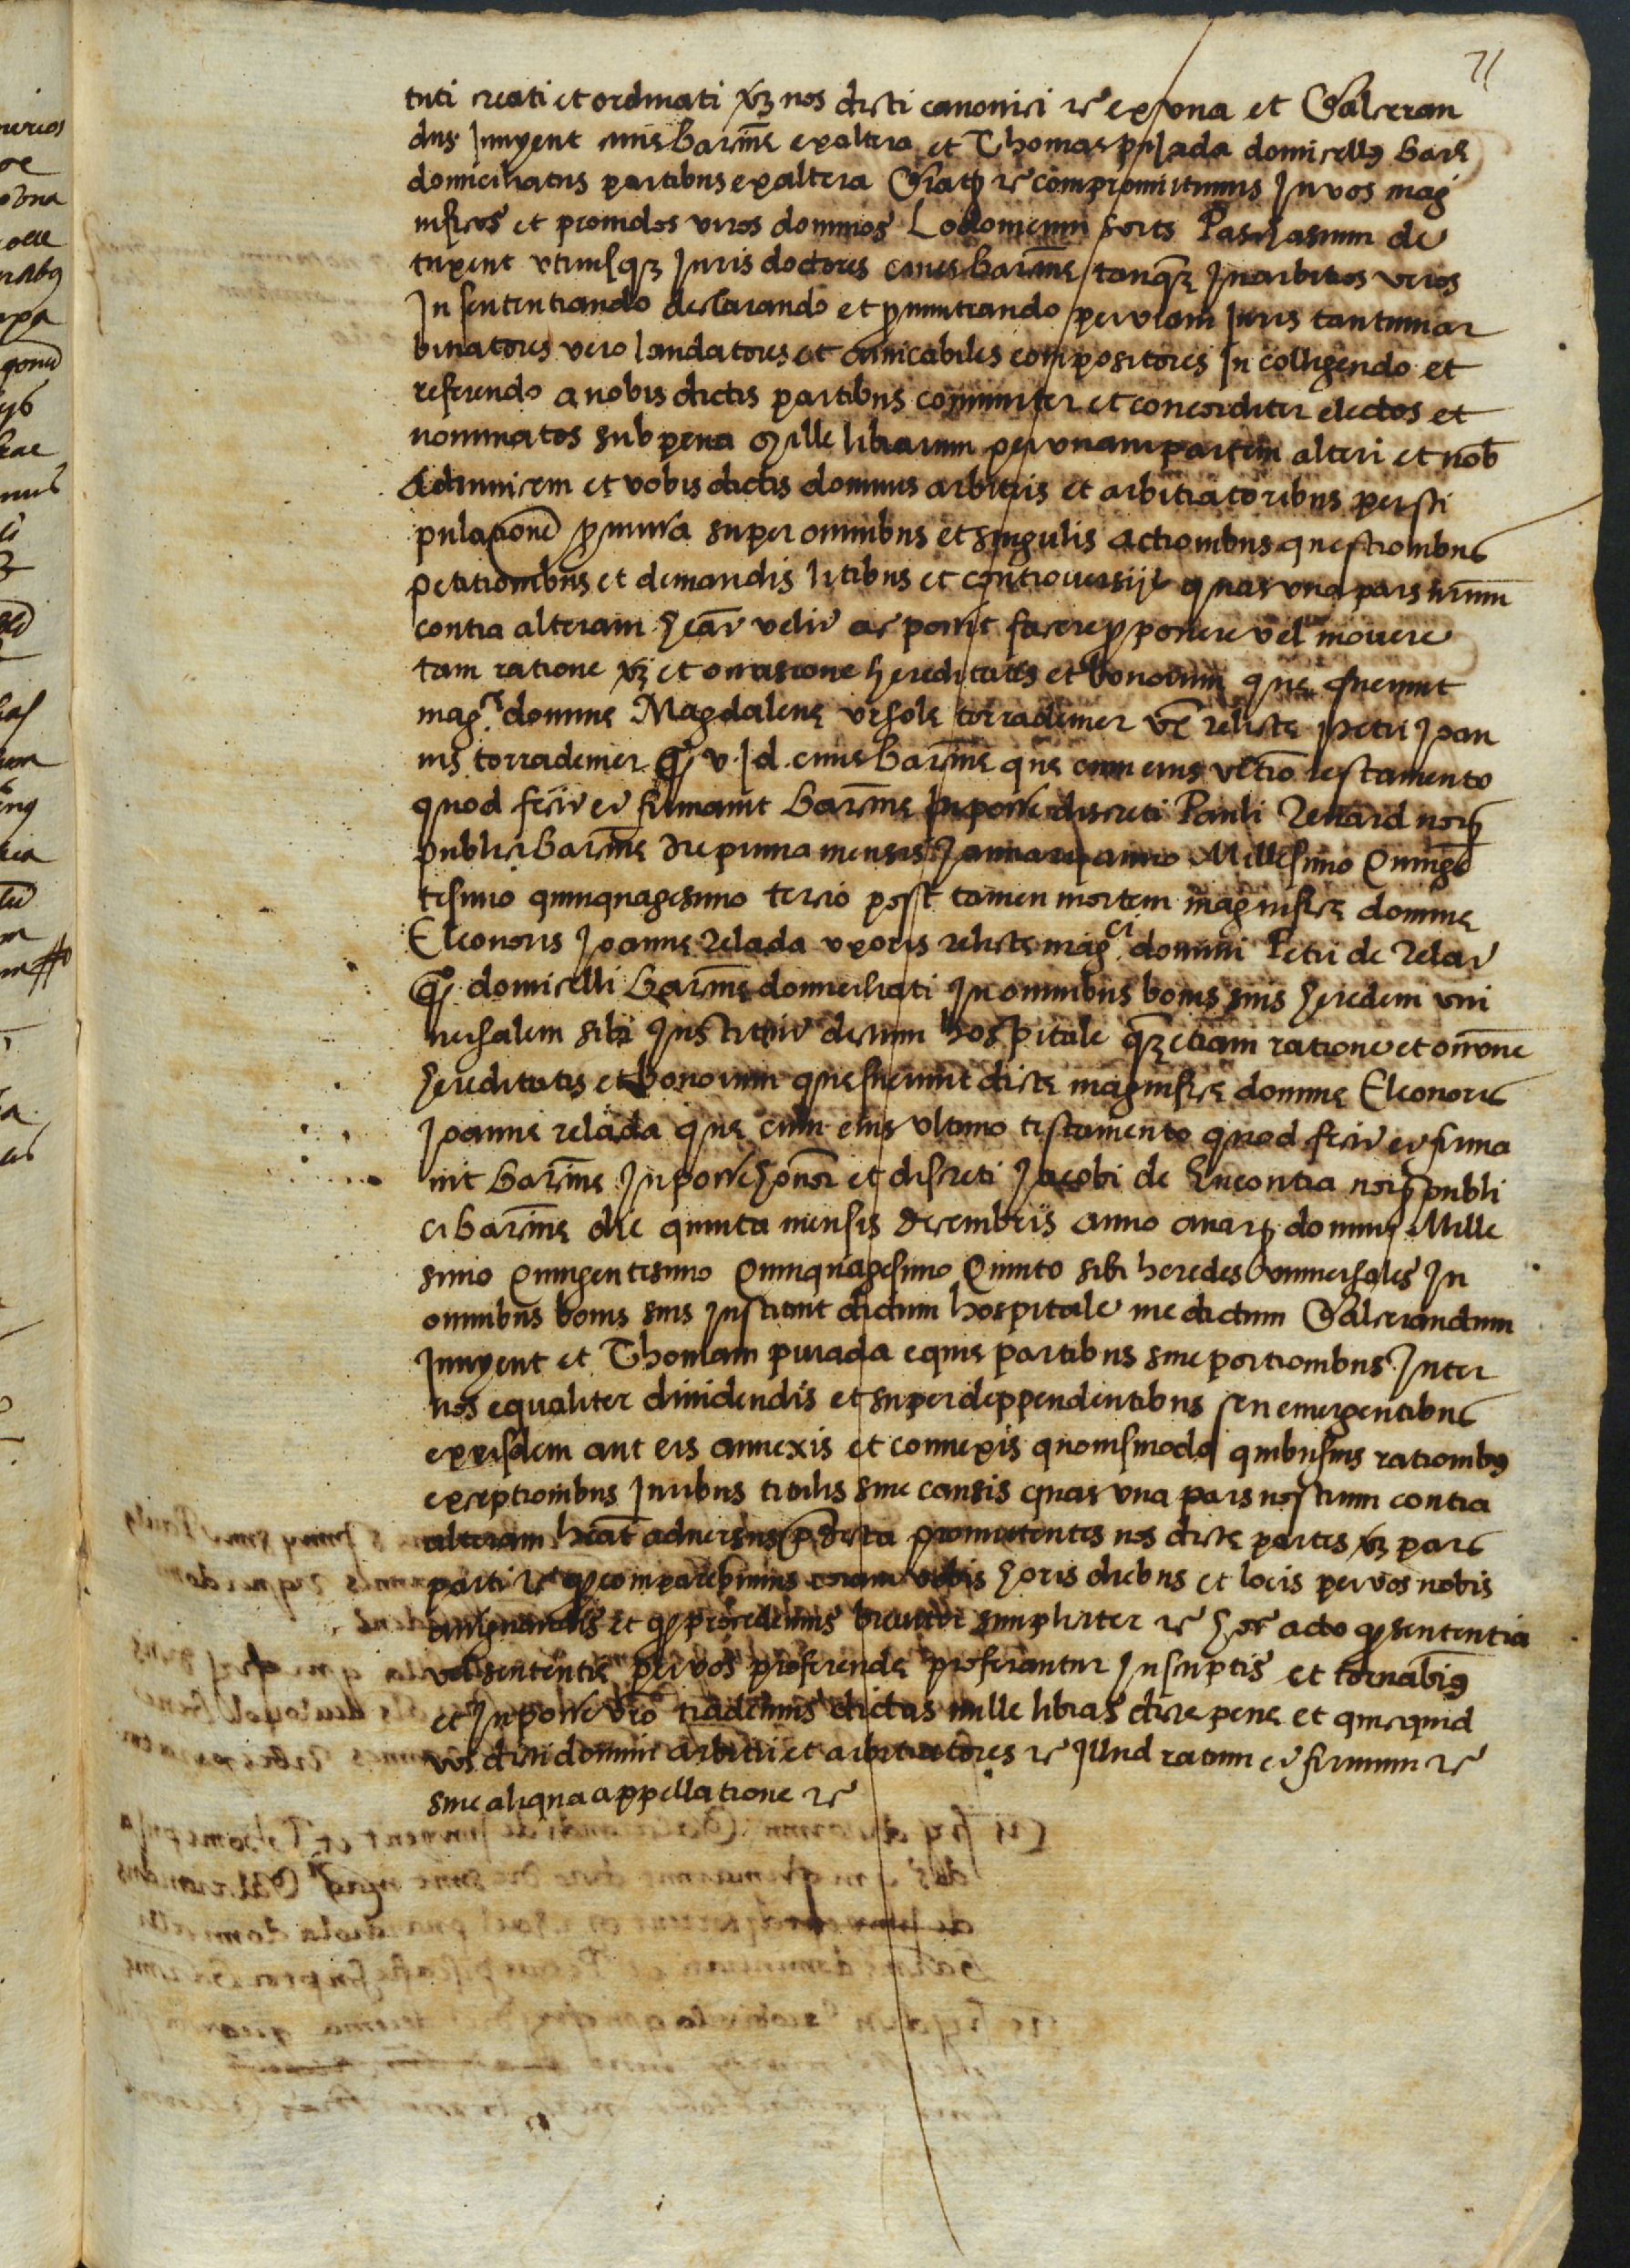 71
tuti creati et ordinati xz nos dicti canonici etc ex una et Galceran
dus Junyent civis barne ex altera et Thomas pujada domicellus bare
domiciliatus partibus ex altera Gratis etc compromittimus In vos mag
nificos et providos viros dominos Lodovicum sorts Paschasium de
tuxent utriusque Juris doctores cives barne tanquam In arbitros veros
In sententiando declarando et pronuntiando per viam Juris tantum ar
bitratores vero laudatores et amicabiles compositores In colligendo et
referendo a nobis dictis partibus comuniter et concorditer electos et
nominatos sub pena Mille librarum per unam partem alteri et nob
Adinvicem et vobis dictis dominis arbitris et arbitratoribus per sti
pulatione promissa super omnibus et singulis actionibus questionibus
petitionibus et demandis litibus et controversijs quas una pars nrum
contra alteram hear velit ac ponit facere proponere vel movere
tam ratione xz et occasione hereditatis et bonorum que fuerunt
magce domine Magdalene Ursole torrademer ux relicte Petri Joan
nis torrademer q v.J.d. civis barne que cum eius ultio testamento
quod fecit et firmavit barne In posse discreti Pauli Renard norij
publici barne die prima mensis Januarij anno Millesimo Quinge
tesimo quinquagesimo tercio post tamen mortem magnifice domine
Eleonoris Joanne relada uxoris relicte magci domini Petri de Relat
q domicelli barne domiciliati In omnibus bonis suis heredem uni
versalem sibi Instituit dictum hospitale q etiam ratione et occone
hereditatis et bonorum que fuerunt dicte magnifice domine Eleonoris
Joanne relada que cum eius ultimo testamento quod fecit et firma
vit barne In posse honor et discreti Jacobi de Encontra norij publi
ci barne die quinta mensis decembris anno a natj domini Mille
simo Quingentesimo Quinquagesimo Quinto sibi heredes universales In
omnibus bonis suis Instituit dictum hospitale me dictum Galcerandum
Junyent et Thomam pujada equis partibus sive portionibus Inter
nos equaliter dividendis et super deppendentibus seu emergentibus
ex eisdem aut eis annexis et connexis quovismodo quibusvis rationibus
exceptionibus Juribus titulis sive causis quas una pars nostrum contra
alteram heat adversus pdicta promittentes nos dicte partes xz pars
parti etc q comparebimus coram vobis horis diebus et locis per vos nobis
assignandis et q procedemus breviter simpliciter etc hoc acto q sententia
vel sententie per vos proferende proferantur In scriptis et tornabimus
et In posse vro trademus dictas mille libras dicte pene et quicquid
vos dicti domini arbitri et arbitratores etc Illud ratum et firmum etc
sine aliqua appellatione etc